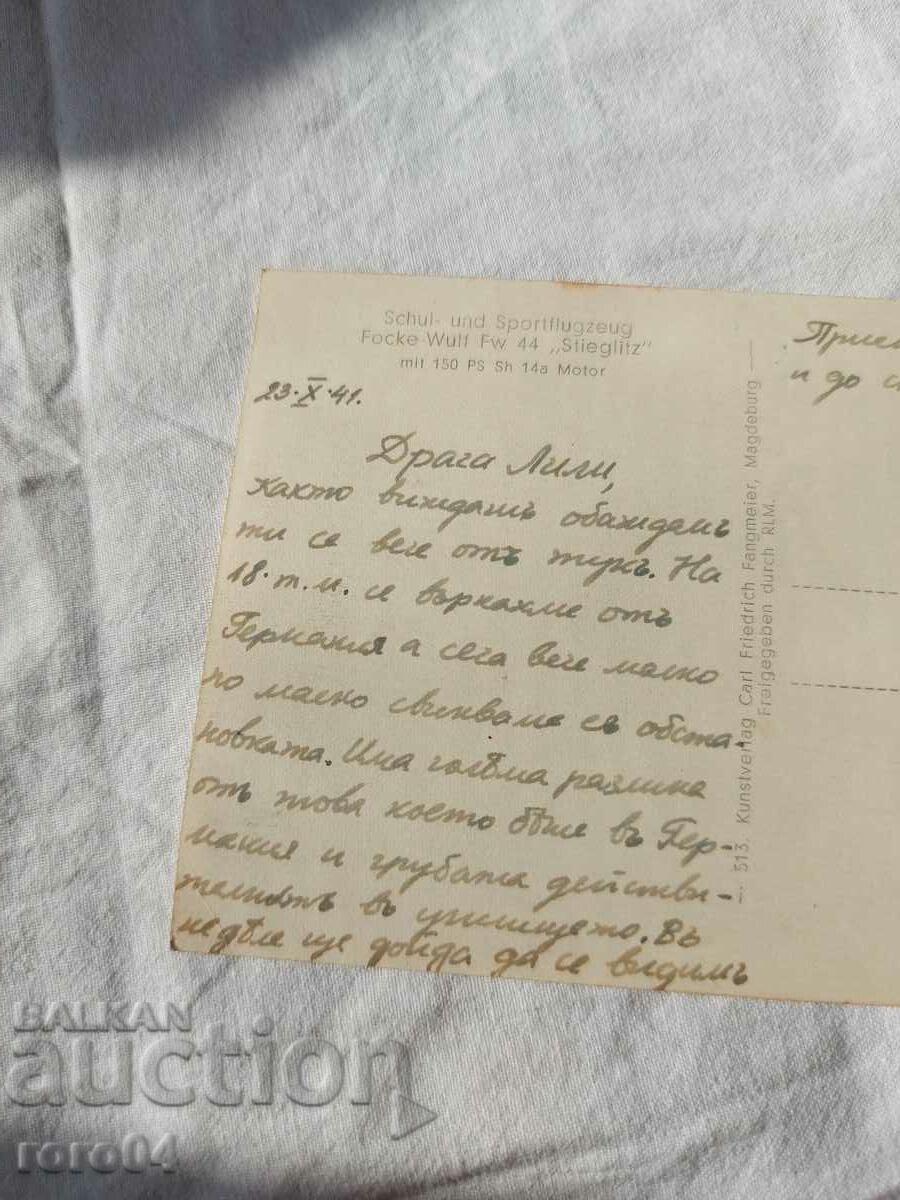 Schul- und Sportflugzeug
Focke-Wulf Fw 44 „Stieglitz"
mit 150 PS Sh 14a Motor
23·X·41.
Драга Лили,
както виждашъ обаждамъ
ти се вече отъ тукъ. На
18·т.м. се върнахме отъ
Германия а сега вече малко
по малко свикваме съ обста-
новката. Има голѣма разлика
отъ това което бѣше въ Гер-
мания и грубата действи-
въ училището. Въ
недѣля ще дойда да се видимъ
513. Kunstverlag Carl Friedrich Fangmeier, Magdeburg
Freigegeben durch RLM.
и до
BALKAN
auction
roro04